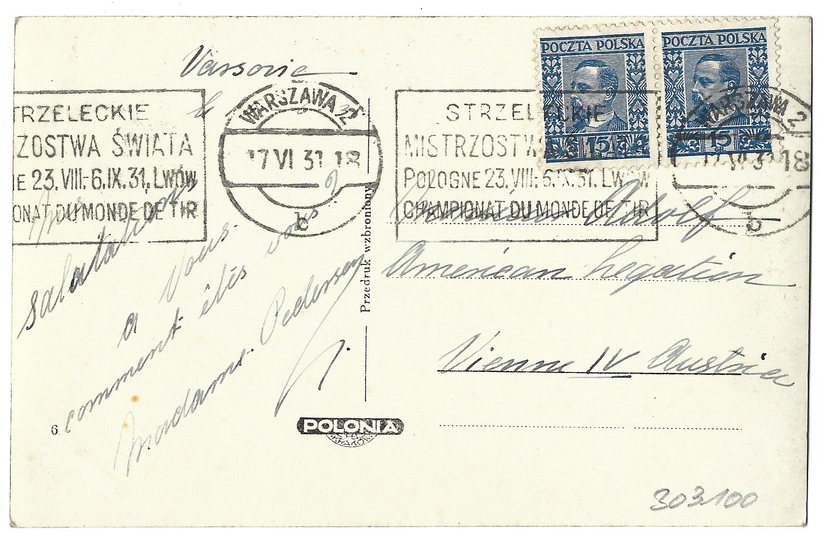 Varsovie
POCZTA POLSKA
POCZTA POLSKA
15
15
TRZELECKIE
ZOSTWA ŚWIATA
IE 23.VIII-6.IX.31, LWÓW
ONAT DU MONDE DE TIR
WARSZAWA 2
17 VI 31 18
b
STRZELECKIE
MISTRZOSTWA ŚWIATA
POLOGNE 23.VIII-6.IX.31, LWÓW
CHAMPIONAT DU MONDE DE TIR
WARSZAWA 2
17 VI 31 18
b
a Vous.
comment êtés vous
madame Pedersen
Przedruk wzbroniony
Adolf
American Legation
Vienne IV Austria
6
POLONIA
KRAKÓW
303100